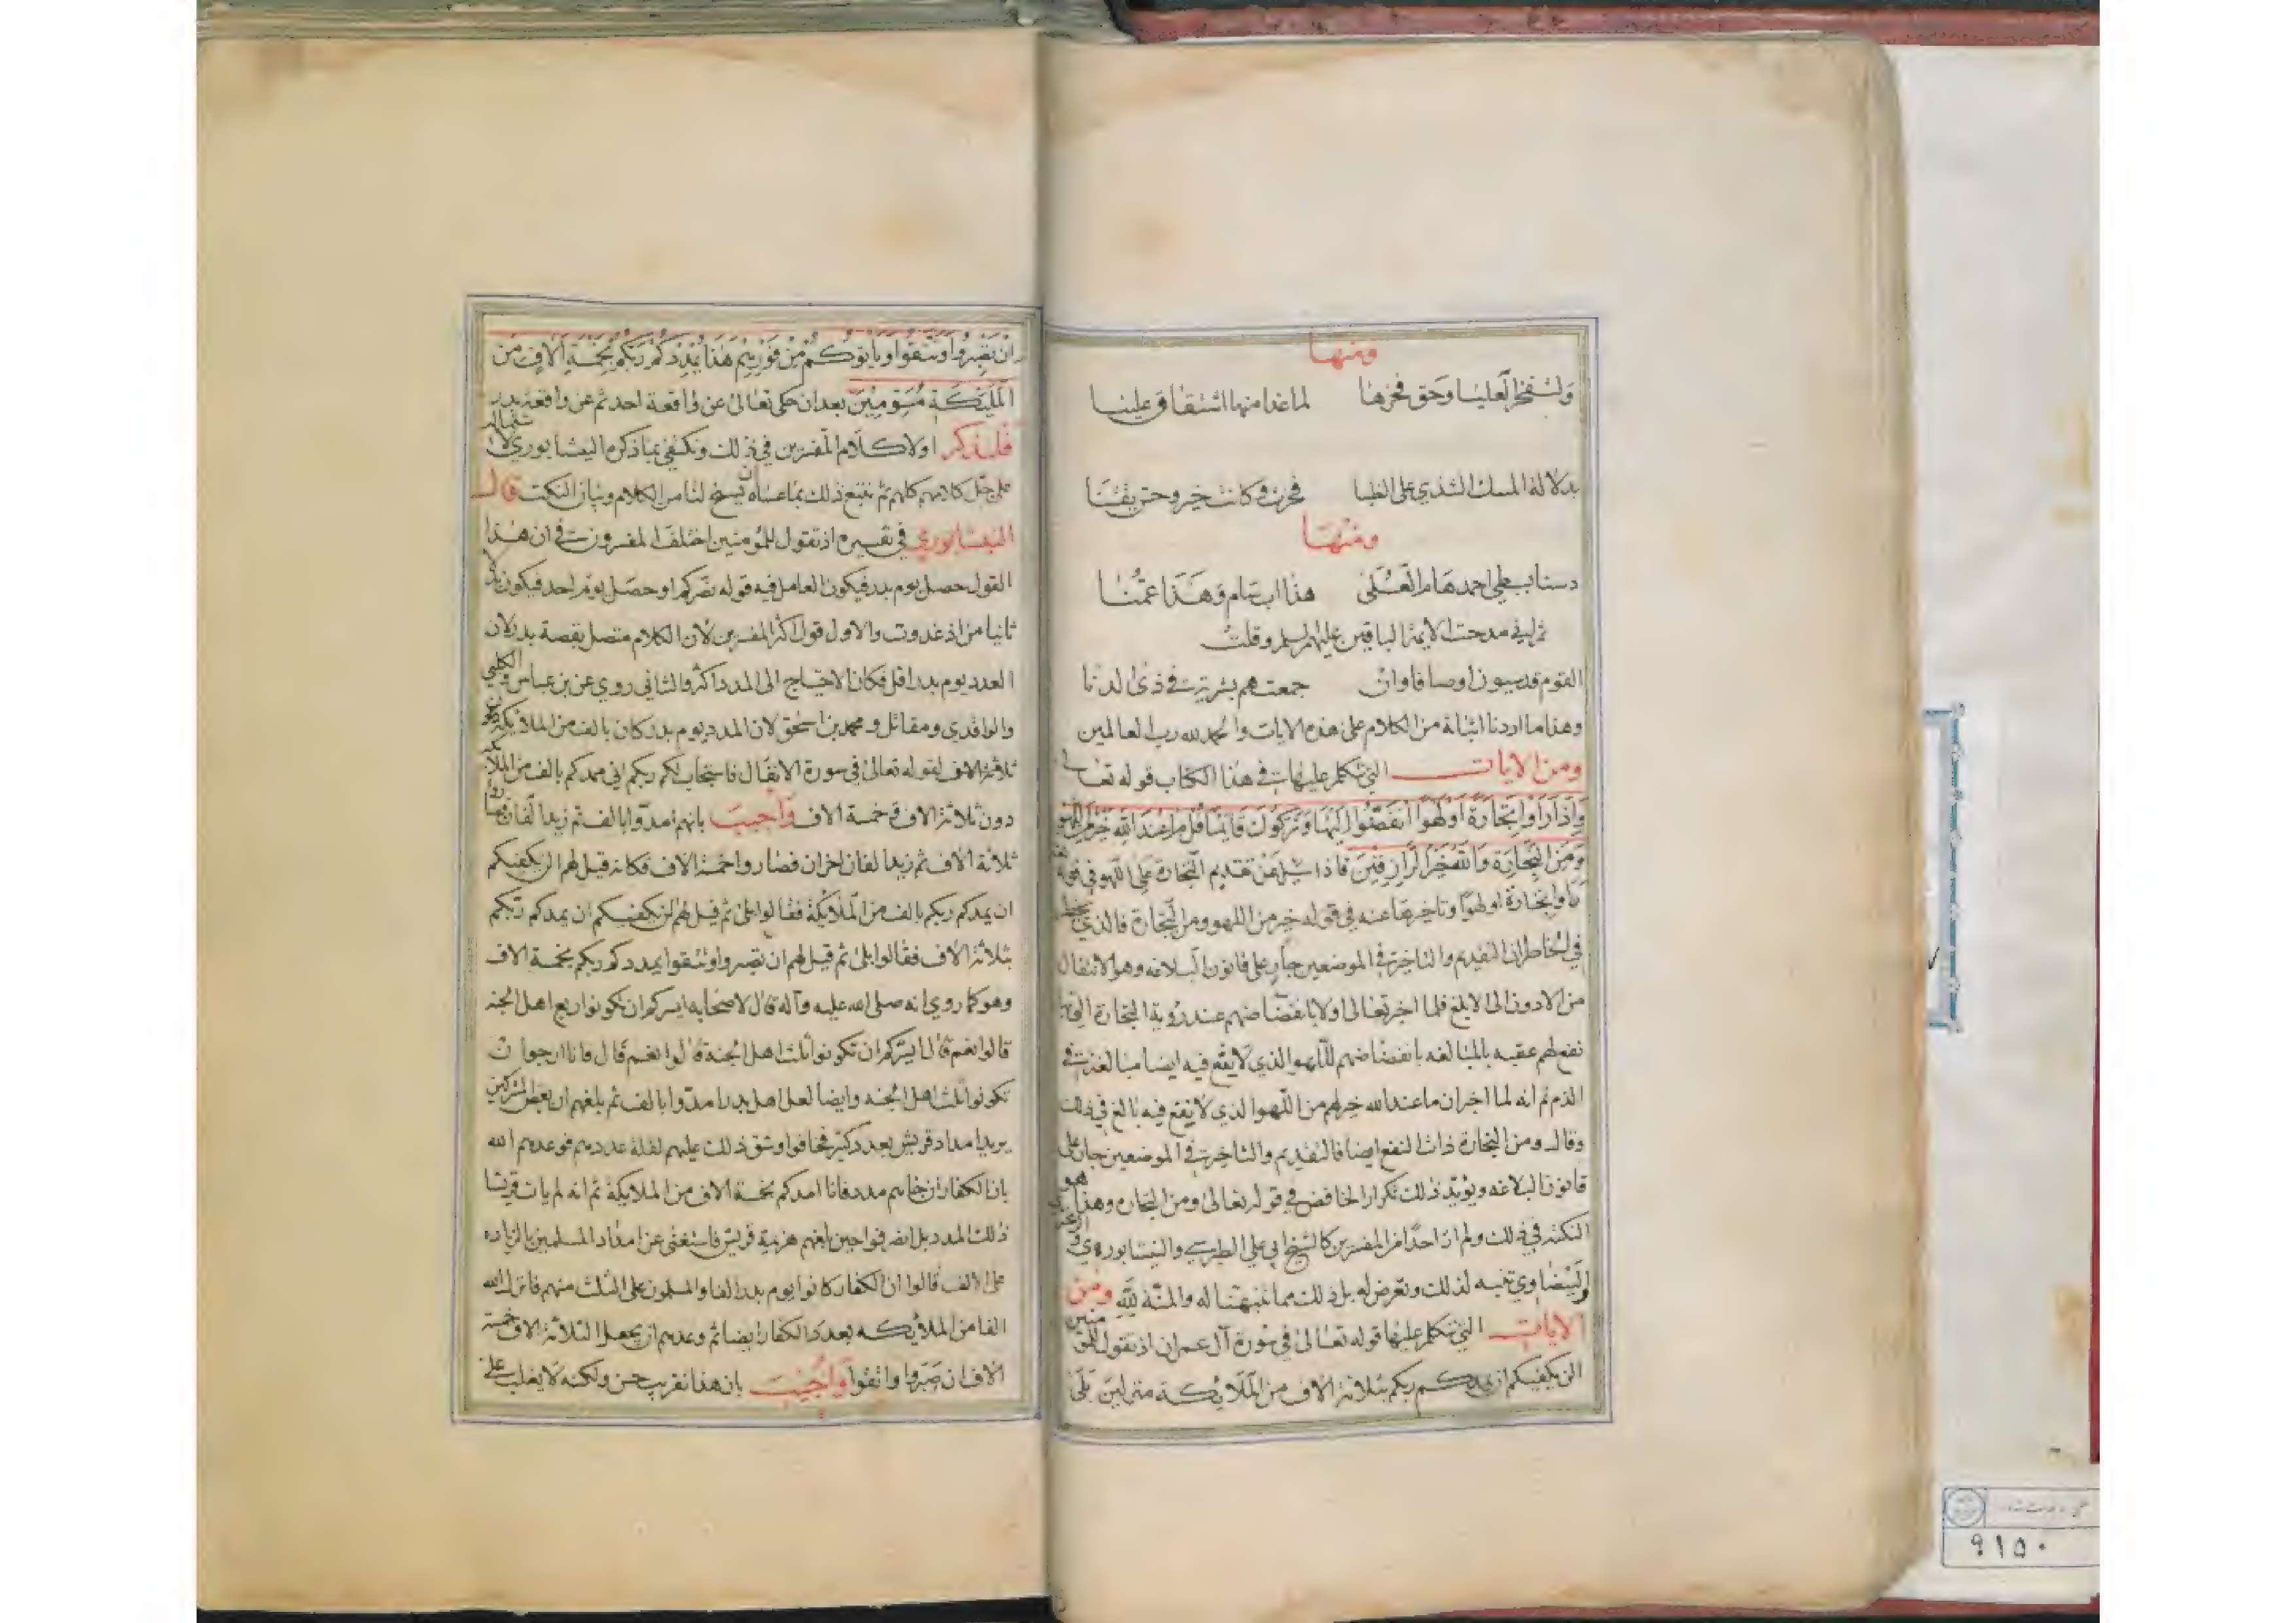 ومنها
ولتفخر العليا وحق فخرها لما غدا منها اشتقاق علينا
بدلالة المسك الشذي على الظبا فخرت وكانت خير وحتريفنا
ومنها
دسنا ببطي احمد هام العُلى هذا ابتهام وهذا عمنا
ثم اني مدحت الايمة الباقين عليهم لسلم وقلت
القوم قدسيون اوصافا وان جمعتهم بشرية في ذي الدنا
وهذا ما اردنا اثباته من الكلام على هذه الايات والحمد لله رب العالمين
ومن الايات التي تتكلم عليها في هذا الكتاب قوله تعالى
وَاِذَا رَاَوْا تِجَارَةً اَوْ لَهْوًا انفَضّوُا اِلَيْهَا وَتَرَكُوكَ قَايِمًا قُلْ مَا عِنْدَ اللهِ خَيْرٌ مِنَ اللَّهْوِ
وَمِنَ التِّجَارَةِ وَاللهُ خَيْرُ الرَّازِقِينَ فاذا سئل عن تقديم التجارة على اللهو في قوله
راوا تجارة او لهوا وتاخيرها عنه في قوله خير من اللهو ومن التجارة فالذي يخطر
في الخاطر ان التقديم والتاخير في الموضعين جار على قانون البلاغه وهو الانتقال
من الادون الى الابلغ فلما اخبر تعالى اولا بانفضاضهم عند روية التجارة التي بها
نفع لهم عقبه بالمبالغه بانفضاضهم للهو الذي لا يقع فيه ايضا مبالغة في
الذم ثم انه لما اخبر ان ما عند الله خير لهم من اللهو الذي لا ينفع فيه بالغ في ذلك
وقال ومن التجارة ذات النفع ايضا فالتقديم والتاخير في الموضعين جار على
قانون البلاغه ويويد ذلك تكرار الخافض في قوله تعالى ومن التجاره وهذا هو
النكته في ذلك ولم ار احدًا من المفسرين كالشيخ ابي علي الطبرسي والنيشابوري و
البيضاوي تنبه لذلك وتعرض له بل ذلك مما تنبهنا له والمنة لله ومن
الايات التي نتكلم عليها قوله تعالى في سورة آل عمران اذ تقول للمؤمنين
الن يكفيكم ان يمدكم ربكم بثلاثة الاف من الملايكة منزلين بلى
ان تَصْبِرُوا وَتَتَّقوُا وياتوكُمْ مِنْ فَوْرِهِمْ هَذَا يُمْدِدْكُمْ رَبّكُمْ بِخَمْسَةِ آلافٍ مِن
الْمَلَيِكَةِ مُسَوِّمِينَ بعد ان حكى تعالى عن واقعة احد ثم عن واقعة بدر
فلنذكر اولا كلام المفسرين في ذلك ونكتفي بما ذكره النيشابوري لاشتماله
على جل كلامهم كلهم ثم نتبع ذلك بما عساه ان يسنح لنا من الكلام وبيان النكت قال
النيشابوري في تفسيره اذ تقول للمؤمنين اختلف المفسرون في ان هذا
القول حصل يوم بدر فيكون العامل فيه قوله نصركم او حصل يوم احد فيكون بدلا
ثانيا من اذ غدوت والاول قول اكثر المفسرين لان الكلام متصل بقصة بدر ولان
العدد يوم بدر اقل فكان الاحتياج الى المدد اكثر والثاني روي عن بن عباس والكلبي
والواقدي ومقاتل ومحمد بن اسحق لان المدد يوم بدر كان بالف من الملايكة دون
ثلاثة الاف لقوله تعالى في سورة الانفال فاستجاب لكم ربكم اني ممدكم بالف من الملايكة
دون ثلاثة الاف وخمسة الاف واجيب بانهم امدوا بالف ثم زيدا لفان فصاروا
ثلاثة الاف ثم زيد الفان اخران فصاروا خمسة الاف فكانه قيل لهم الن يكفيكم
ان يمدكم ربكم بالف من الملايكة فقالوا بلى ثم قيل لهم الن يكفيكم ان يمدكم ربكم
بثلاثة الاف فقالوا بلى ثم قيل لهم ان تصبروا وتتقوا يمددكم ربكم بخمسة الاف
وهو كما روي انه صلى الله عليه وآله قال لاصحابه ايسركم ان تكونوا ربع اهل الجنه
قالوا نعم قال ايسركم ان تكونوا ثلث اهل الجنة قالوا نعم قال فانا ارجوا ان
تكونوا ثلث اهل الجنه وايضا لعل اهل بدر امدوا بالف ثم بلغهم ان بعض المشركين
يريد امداد قريش بعدد كثير فخافوا وشق ذلك عليهم لقلة عددهم فوعدهم الله
بان الكفار ان جاءهم مدد فانا امدكم بخمسة الاف من الملايكة ثم انه لم يات قريشا
ذلك المدد بل انصرفوا حين بلغهم هزيمة قريش فاستغنى عن امداد المسلمين بالزياده
على الالف قالوا ان الكفار كانوا يوم بدر الفا والمسلمون على الثلث منهم فانزل الله
الفا من الملايكه بعدد الكفار ايضا ثم وعدهم ان يجعل الثلاثة الاف خمسة
الاف ان صبروا واتقوا واجيب بان هذا تقريب حسن ولكنه لا يغلب على
٩١٥٠